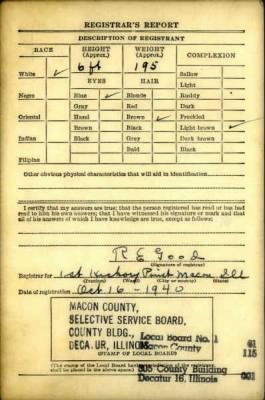 REGISTRAR'S REPORT
DESCRIPTION OF REGISTRANT
RACE HEIGHT (Approx.) WEIGHT (Approx.) COMPLEXION
White ✓ 6 ft 195 Sallow
EYES HAIR Light
Negro Blue ✓ Blonde Ruddy
Gray Red Dark
Oriental Hazel Brown ✓ Freckled
Brown Black Light brown ✓
Indian Black Gray Dark brown
Bald Black
Filipino
Other obvious physical characteristics that will aid in identification
I certify that my answers are true; that the person registered has read or has had
read to him his own answers; that I have witnessed his signature or mark and that
all of his answers of which I have knowledge are true, except as follows:
R E Good
(Signature of registrar)
Registrar for 1st Hickory Point Macon Ill
(Precinct) (Ward) (City or county) (State)
Date of registration Oct 16 - 1940
MACON COUNTY,
SELECTIVE SERVICE BOARD,
COUNTY BLDG.,
DECATUR, ILLINOIS
Local Board No. 1 61
Macon County 115
(STAMP OF LOCAL BOARD)
305 County Building 001
Decatur 16, Illinois
(The stamp of the Local Board having jurisdiction of the registrant
shall be placed in the above space)